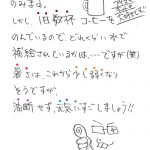 のみまる。
しかし、1日数杯 コーヒーを
のんでいるので、どれくらい水で
補給されているかは、…ですが(笑)
暑さは、これから少し弱くなり
そうですが、
油断せず、元気にすごしましょう!!